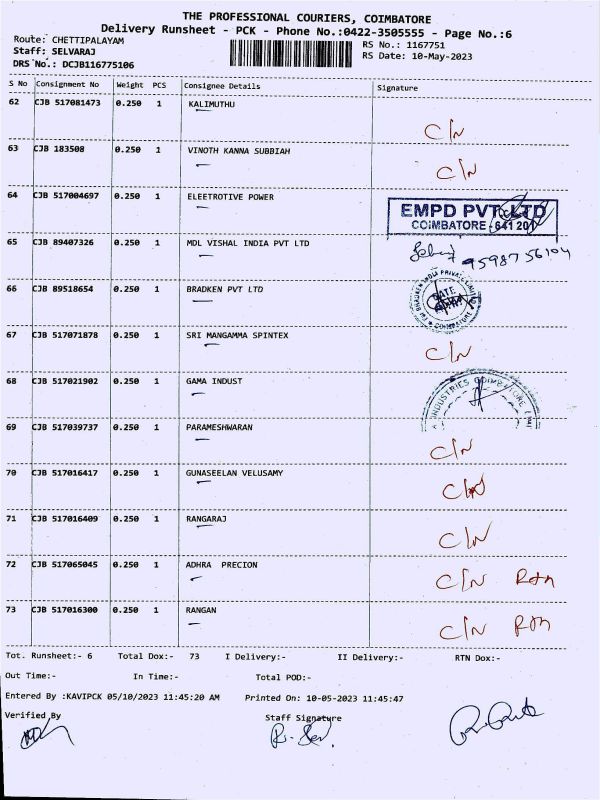 THE PROFESSIONAL COURIERS, COIMBATORE
Delivery Runsheet - PCK - Phone No.:0422-3505555 - Page No.:6
Route: CHETTIPALAYAM
RS No.: 1167751
Staff: SELVARAJ
RS Date: 10-May-2023
DRS No.: DCJB116775106
S No Consignment No Weight PCS Consignee Details Signature
62 CJB 517081473 0.250 1 KALIMUTHU
C/N
63 CJB 183508 0.250 1 VINOTH KANNA SUBBIAH
C/N
64 CJB 517004697 0.250 1 ELEETROTIVE POWER
EMPD PVT LTD
COIMBATORE - 641 201
65 CJB 89407326 0.250 1 MDL VISHAL INDIA PVT LTD
9598756104
66 CJB 89518654 0.250 1 BRADKEN PVT LTD
BRADKEN INDIA PRIVATE LIMITED
GATE
COIMBATORE
67 CJB 517071878 0.250 1 SRI MANGAMMA SPINTEX
C/N
68 CJB 517021902 0.250 1 GAMA INDUST
INDUSTRIES COIMBATORE
69 CJB 517039737 0.250 1 PARAMESHWARAN
C/N
70 CJB 517016417 0.250 1 GUNASEELAN VELUSAMY
C/N
71 CJB 517016409 0.250 1 RANGARAJ
C/N
72 CJB 517065045 0.250 1 ADHRA PRECION
C/N Rtn
73 CJB 517016300 0.250 1 RANGAN
C/N Rtn
Tot. Runsheet:- 6 Total Dox:- 73 I Delivery:- II Delivery:- RTN Dox:-
Out Time:- In Time:- Total POD:-
Entered By :KAVIPCK 05/10/2023 11:45:20 AM Printed On: 10-05-2023 11:45:47
Verified By Staff Signature